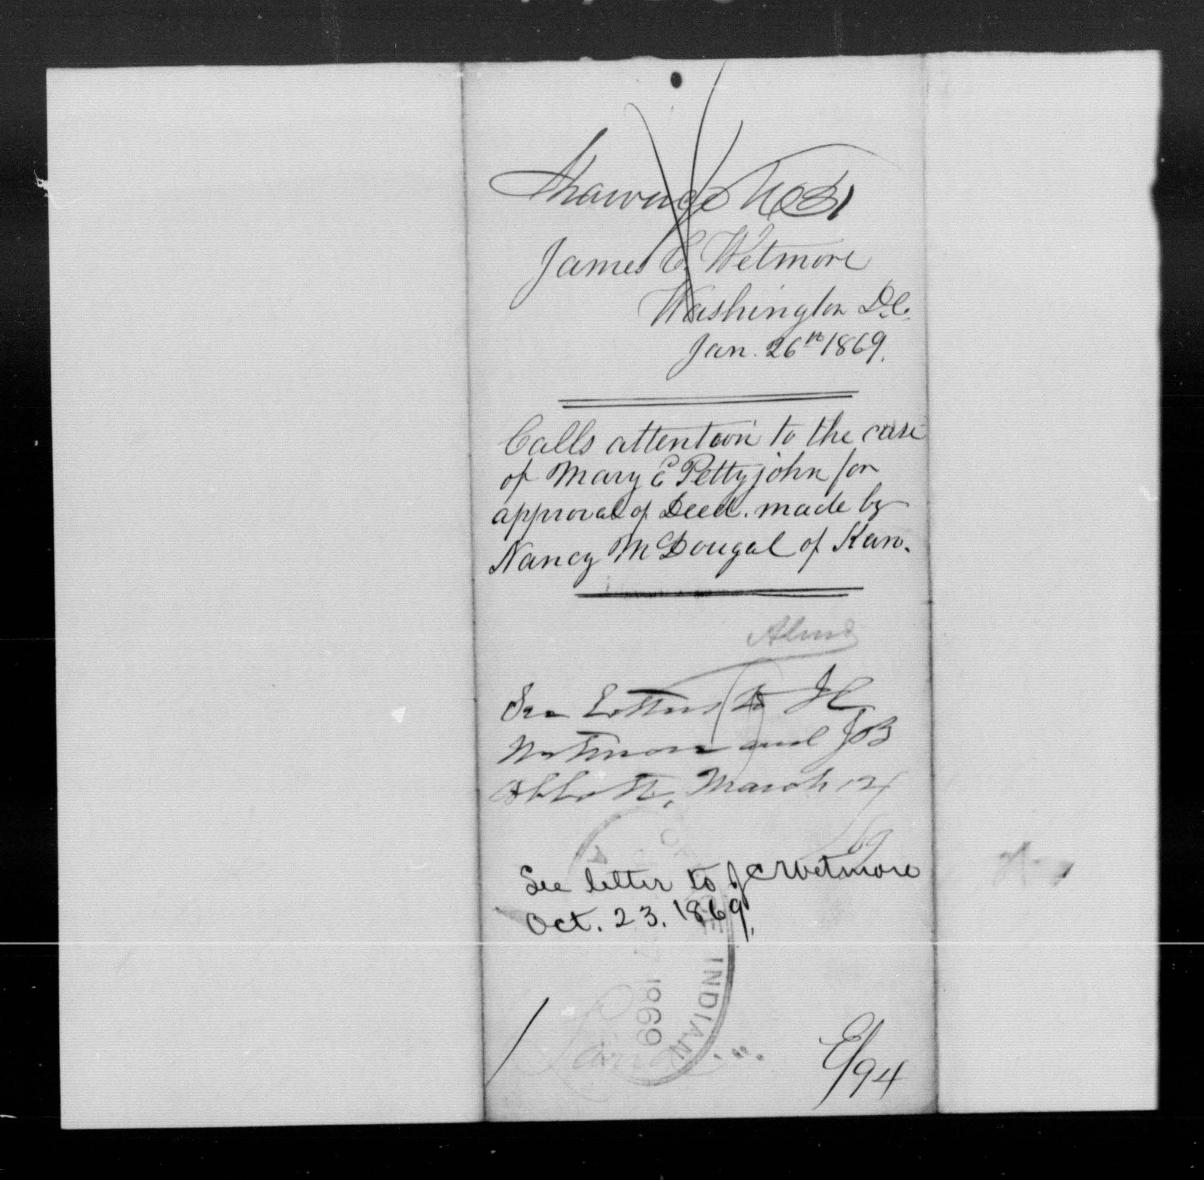 Shawnee W 81
James C. Wetmore
Washington D.C.
Jan. 26th 1869.
Calls attention to the case
of Mary E Pettyjohn for
approval of Deed. made by
Nancy McDougal of Kan.
See Letters to J C
Wetmore and J B
Abbott, March 12/
69
See letter to J C Wetmore
Oct. 23. 1869.
OFFICE INDIAN A
7 1869
Land
E/94